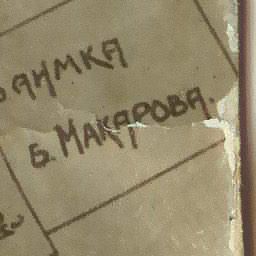 ЗАИМКА
Б. МАКАРОВА.